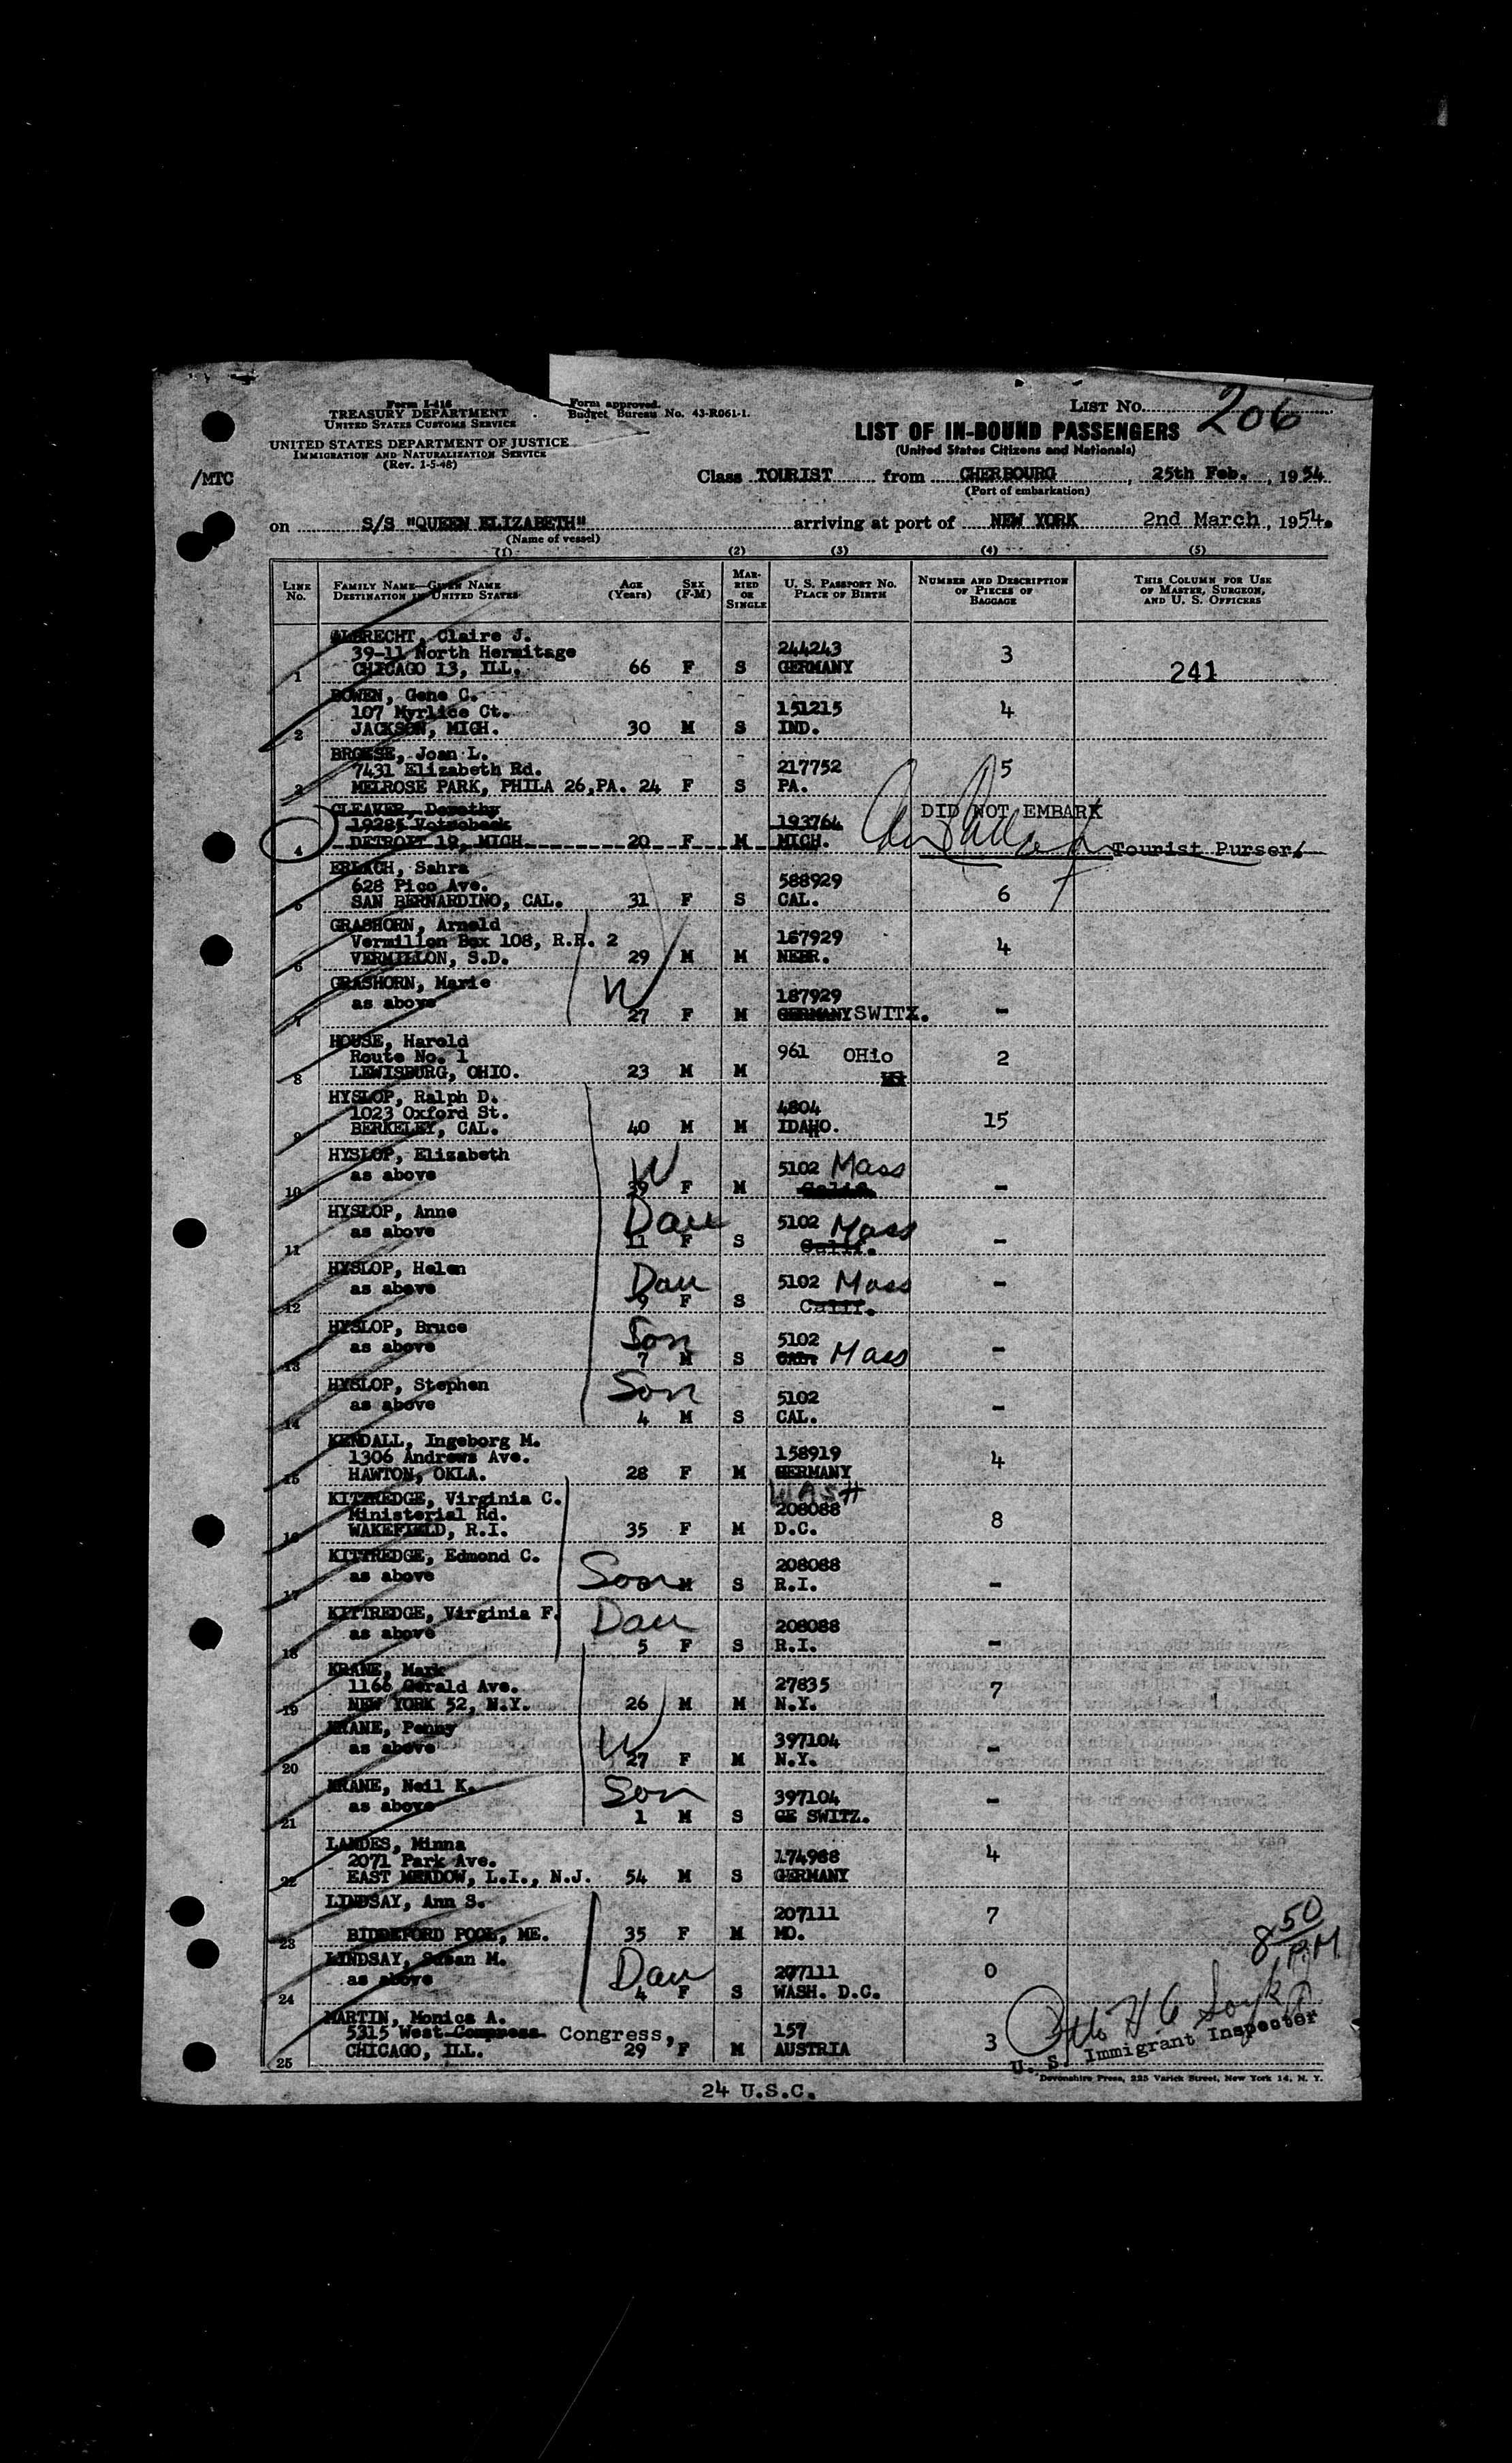 Form I-418
TREASURY DEPARTMENT
UNITED STATES CUSTOMS SERVICE
UNITED STATES DEPARTMENT OF JUSTICE
IMMIGRATION AND NATURALIZATION SERVICE
(Rev. 1-5-48)
Form approved.
Budget Bureau No. 43-R061-1.
LIST NO. 206
LIST OF IN-BOUND PASSENGERS
(United States Citizens and Nationals)
/MTC
Class TOURIST from CHERBOURG, 25th Feb., 1954
(Port of embarkation)
on S/S "QUEEN ELIZABETH" arriving at port of NEW YORK 2nd March, 1954.
(Name of vessel)
(1) (2) (3) (4) (5)
LINE NO.
FAMILY NAME—GIVEN NAME
DESTINATION IN UNITED STATES
AGE (Years)
SEX (F-M)
MARRIED OR SINGLE
U. S. PASSPORT NO.
PLACE OF BIRTH
NUMBER AND DESCRIPTION OF PIECES OF BAGGAGE
THIS COLUMN FOR USE OF MASTER, SURGEON, AND U. S. OFFICERS
ALBRECHT, Claire J.
39-11 North Hermitage 244243 3
1 CHICAGO 13, ILL. 66 F S GERMANY 241
BOWEN, Gene C.
107 Myrlice Ct. 151215 4
2 JACKSON, MICH. 30 M S IND.
BROESE, Joan L.
7431 Elizabeth Rd. 217752 5
3 MELROSE PARK, PHILA 26,PA. 24 F S PA.
CLEAVER, Dorothy
19285 193764 DID NOT EMBARK
4 DETROIT 19, MICH 20 F M MICH. Tourist Purser.
ERLACH, Sahra
628 Pico Ave. 588929
5 SAN BERNARDINO, CAL. 31 F S CAL. 6
GRASHORN, Arnold
Vermillon Box 108, R.R. 2 187929 4
6 VERMILLON, S.D. 29 M M NEBR.
GRASHORN, Marie
as above W 187929
7 27 F M GERMANY SWITZ. -
HOUSE, Harold
Route No. 1 961 OHio 2
8 LEWISBURG, OHIO. 23 M M
HYSLOP, Ralph D.
1023 Oxford St. 4804 15
9 BERKELEY, CAL. 40 M M IDAHO.
HYSLOP, Elizabeth
as above W 5102 Mass
10 39 F M Calif. -
HYSLOP, Anne
as above Dau 5102 Mass
11 11 F S Calif. -
HYSLOP, Helen
as above Dau 5102 Mass -
12 9 F S Calif.
HYSLOP, Bruce
as above Son 5102
13 7 M S CAL. Mass -
HYSLOP, Stephen
as above Son 5102
14 4 M S CAL. -
KENDALL, Ingeborg M.
1306 Andrews Ave. 158919 4
15 HAWTON, OKLA. 28 F M GERMANY
KITTREDGE, Virginia C. WASH
Ministerial Rd. 208088 8
16 WAKEFIELD, R.I. 35 F M D.C.
KITTREDGE, Edmond C.
as above 208088
17 Son M S R.I. -
KITTREDGE, Virginia F.
as above Dau 208088
18 5 F S R.I. -
KRANE, Mark
1166 Gerald Ave. 27835 7
19 NEW YORK 52, N.Y. 26 M M N.Y.
KRANE, Penny
as above W 397104 -
20 27 F M N.Y.
KRANE, Neil K.
as above Son 397104 -
21 1 M S GE SWITZ.
LANDES, Minna
2071 Park Ave. 174988 4
22 EAST MEADOW, L.I., N.J. 54 M S GERMANY
LINDSAY, Ann S.
207111 7
23 BIDDEFORD POOL, ME. 35 F M MO.
8 50 P.M.
LINDSAY, Susan M.
as above Dau 207111 0
24 4 F S WASH. D.C.
MARTIN, Monica A.
5315 West Compress Congress, 157
25 CHICAGO, ILL. 29 F M AUSTRIA 3
U. S. Immigrant Inspector
Devonshire Press, 225 Varick Street, New York 14, N. Y.
24 U.S.C.